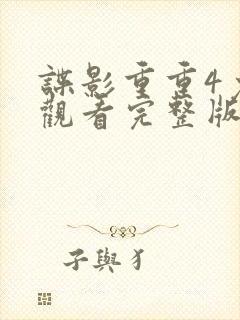 諜影重重4
觀看完整版
子與犭